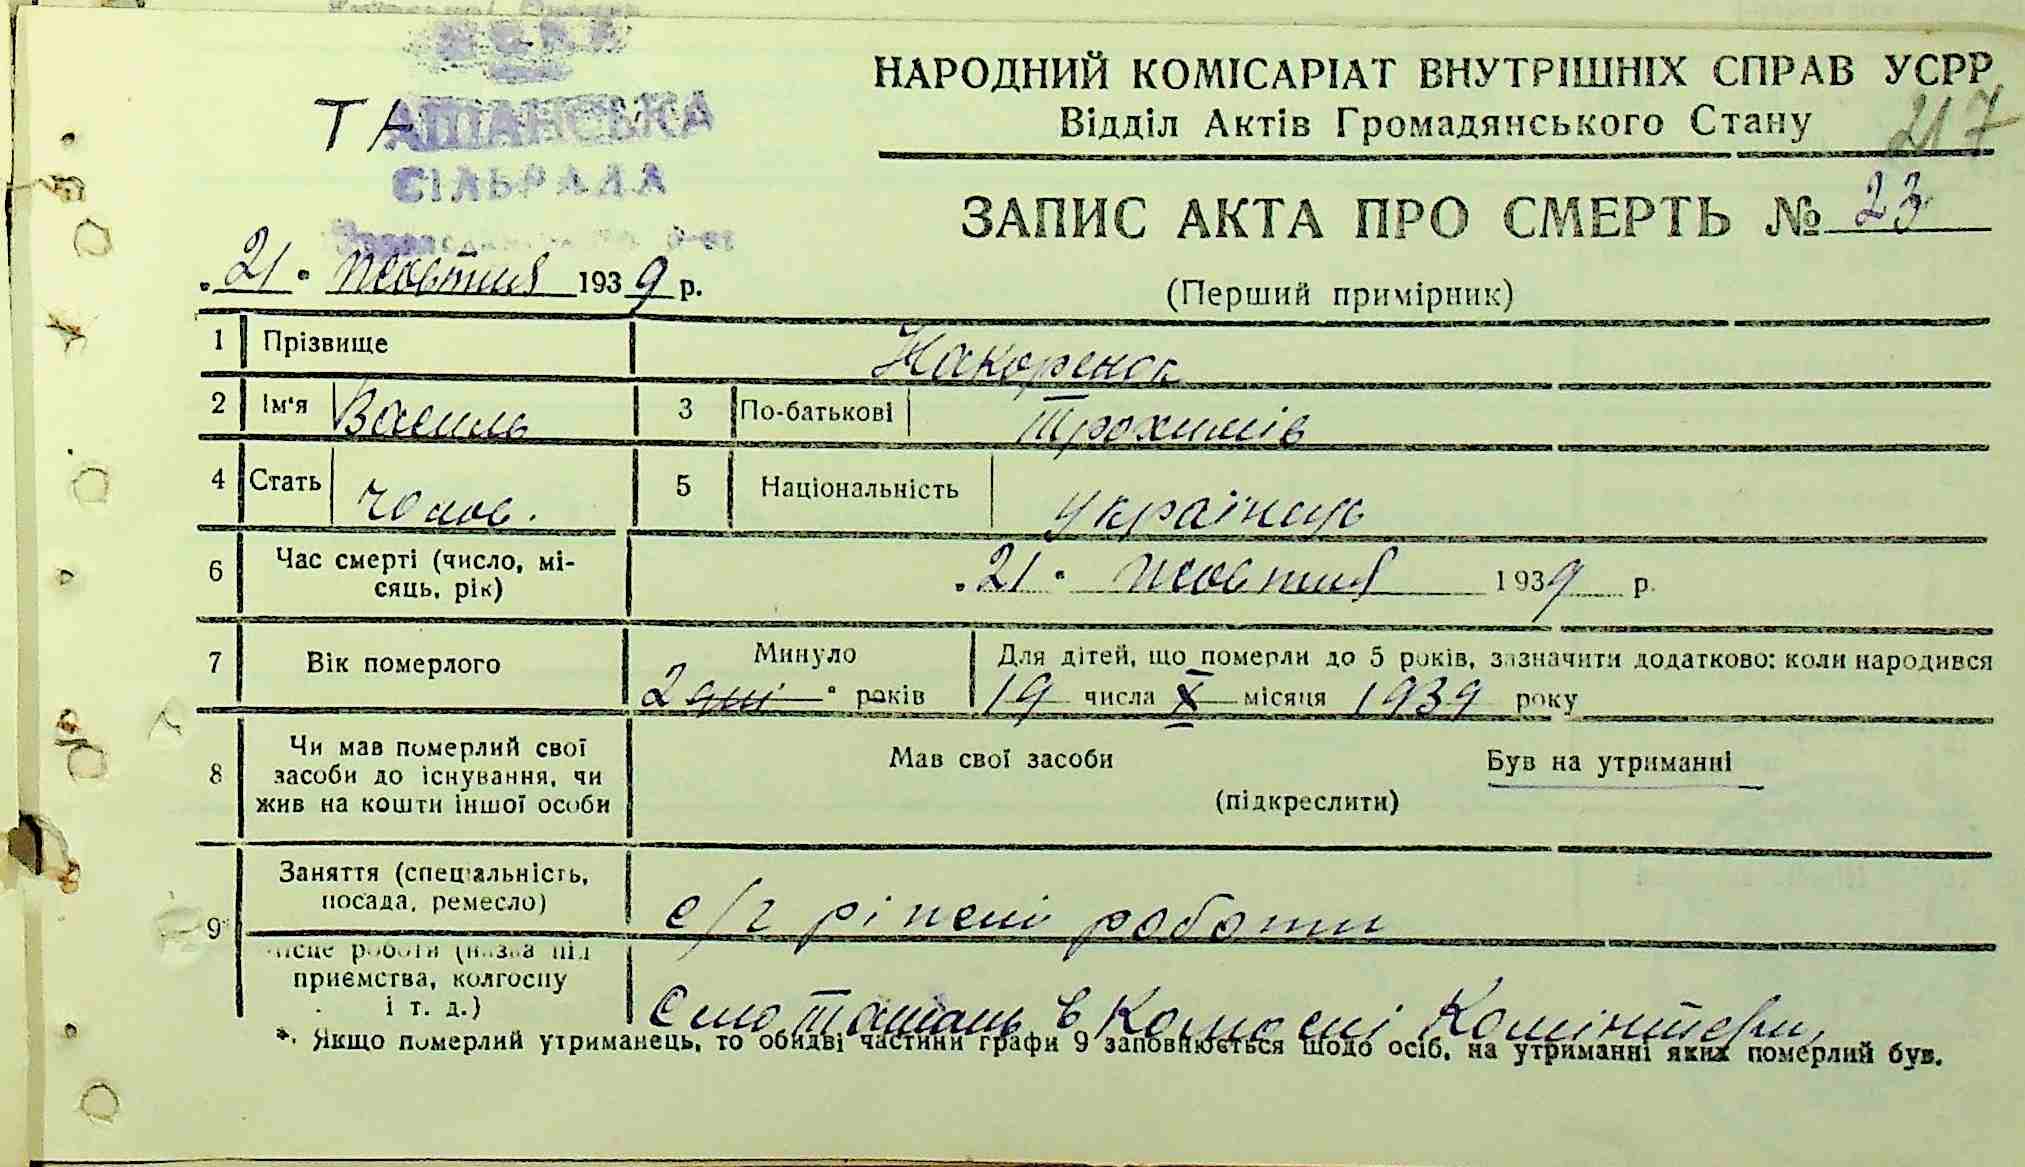 ТАШАНСЬКА
СІЛЬРАДА
НАРОДНИЙ КОМІСАРІАТ ВНУТРІШНІХ СПРАВ УСРР
Відділ Актів Громадянського Стану
217
ЗАПИС АКТА ПРО СМЕРТЬ № 23
(Перший примірник)
„21" жовтня 1939 р.
1 Прізвище Накоренок
2 Ім'я Василь 3 По-батькові Трохимів
4 Стать чолов. 5 Національність українець
6 Час смерті (число, мі-
сяць, рік) „21" жовтня 1939 р.
7 Вік померлого Минуло
2 дні " років
Для дітей, що померли до 5 років, зазначити додатково: коли народився
19 числа X місяця 1939 року
8 Чи мав померлий свої
засоби до існування, чи
жив на кошти іншої особи
Мав свої засоби Був на утриманні
(підкреслити)
9 Заняття (спеціальність,
посада, ремесло) с/г різні роботи
Місце роботи (назва під
приємства, колгоспу
і т. д.) село Ташань в Колгоспі Комінтерн
*. Якщо померлий утриманець, то обидві частини графи 9 заповнюється щодо осіб, на утриманні яких померлий був.